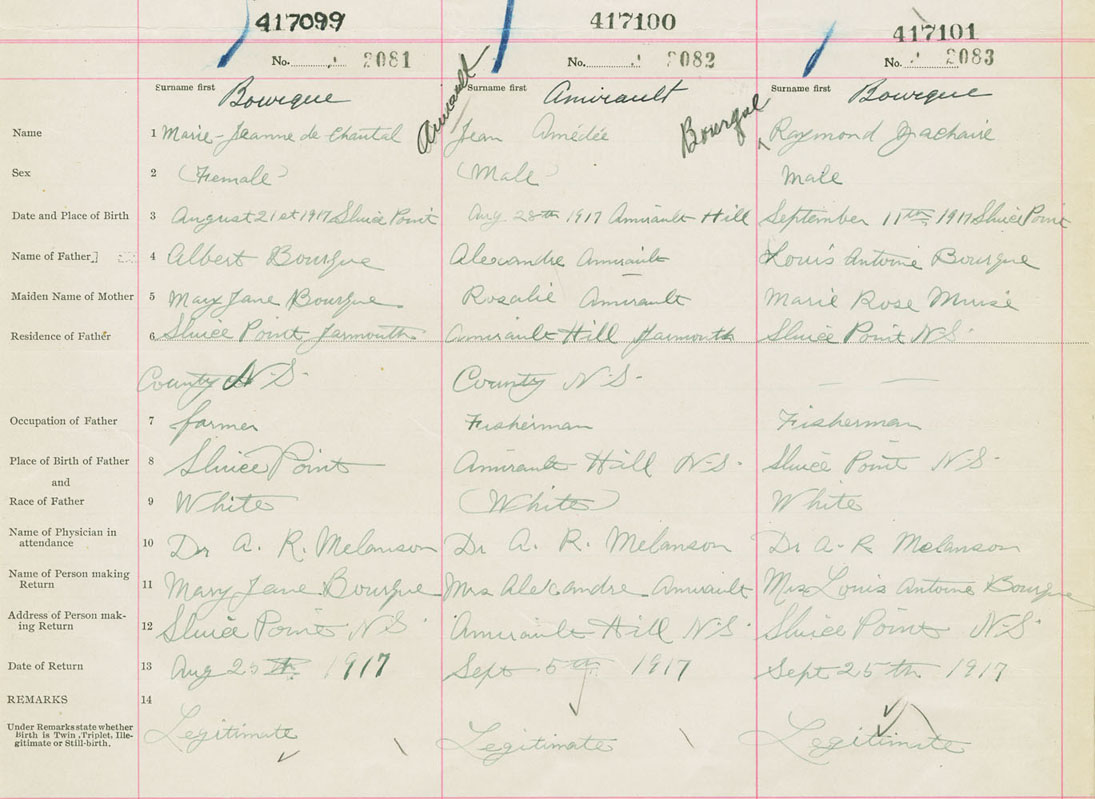 417099 417100 417101
No. 2081 No. 2082 No. 2083
Surname first Bourque Amirault Surname first Amirault Bourque Surname first Bourque
Name 1 Marie-Jeanne de Chantal Jean Amédée Raymond Zachaire
Sex 2 (Female) (Male) Male
Date and Place of Birth 3 August 21st 1917 Sluice Point Aug 28th 1917 Amirault Hill September 11th 1917 Sluice Point
Name of Father] 4 Albert Bourque Alexandre Amirault Louis Antoine Bourque
Maiden Name of Mother 5 Mary Jane Bourque Rosalie Amirault Marie Rose Muise
Residence of Father 6 Sluice Point Yarmouth Amirault Hill Yarmouth Sluice Point N.S.
County N.S. County N.S. — —
Occupation of Father 7 farmer Fisherman Fisherman
Place of Birth of Father 8 Sluice Point Amirault Hill N.S. Sluice Point N.S.
and
Race of Father 9 White (White) White
Name of Physician in
attendance 10 Dr A. R. Melanson Dr A. R. Melanson Dr A. R. Melanson
Name of Person making
Return 11 Mary Jane Bourque Mrs Alexandre Amirault Mrs Louis Antoine Bourque
Address of Person mak-
ing Return 12 Sluice Point N.S. Amirault Hill N.S. Sluice Point N.S.
Date of Return 13 Aug 25th 1917 Sept 5th 1917 Sept 25th 1917
REMARKS 14
Under Remarks state whether
Birth is Twin, Triplet, Ille-
gitimate or Still-birth. Legitimate Legitimate Legitimate